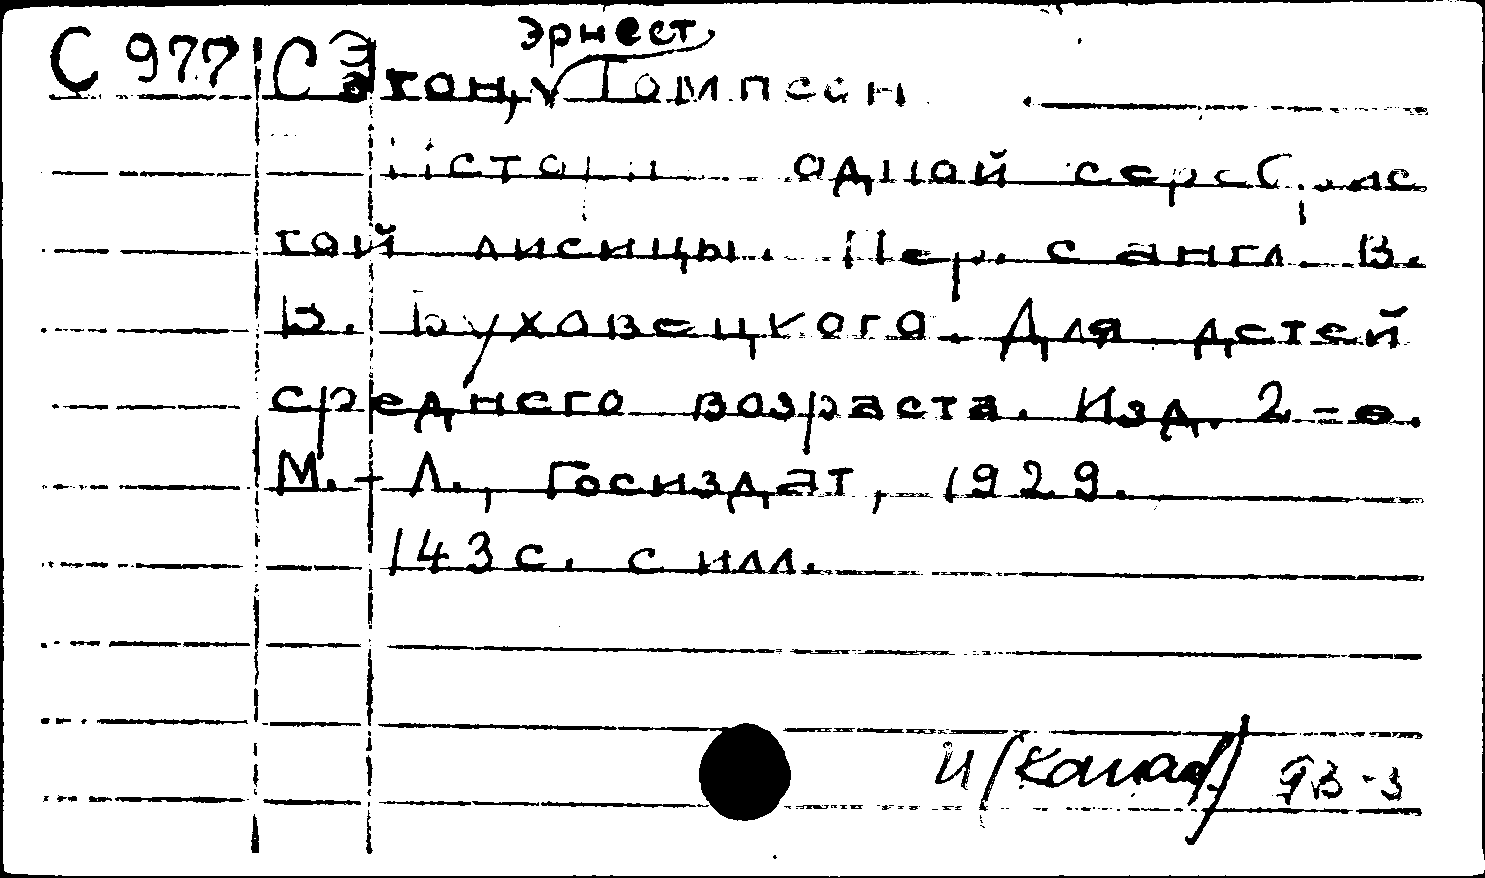 Эрнест
С 977 Сэтон, Томпсон
История одной серебрис
той лисицы. Пер. с англ. В.
В. Буховецкого. Для детей
среднего возраста. Изд. 2-е.
М.-Л., Госиздат, 1929.
143 с. с илл.
И(Канад) 9В-3